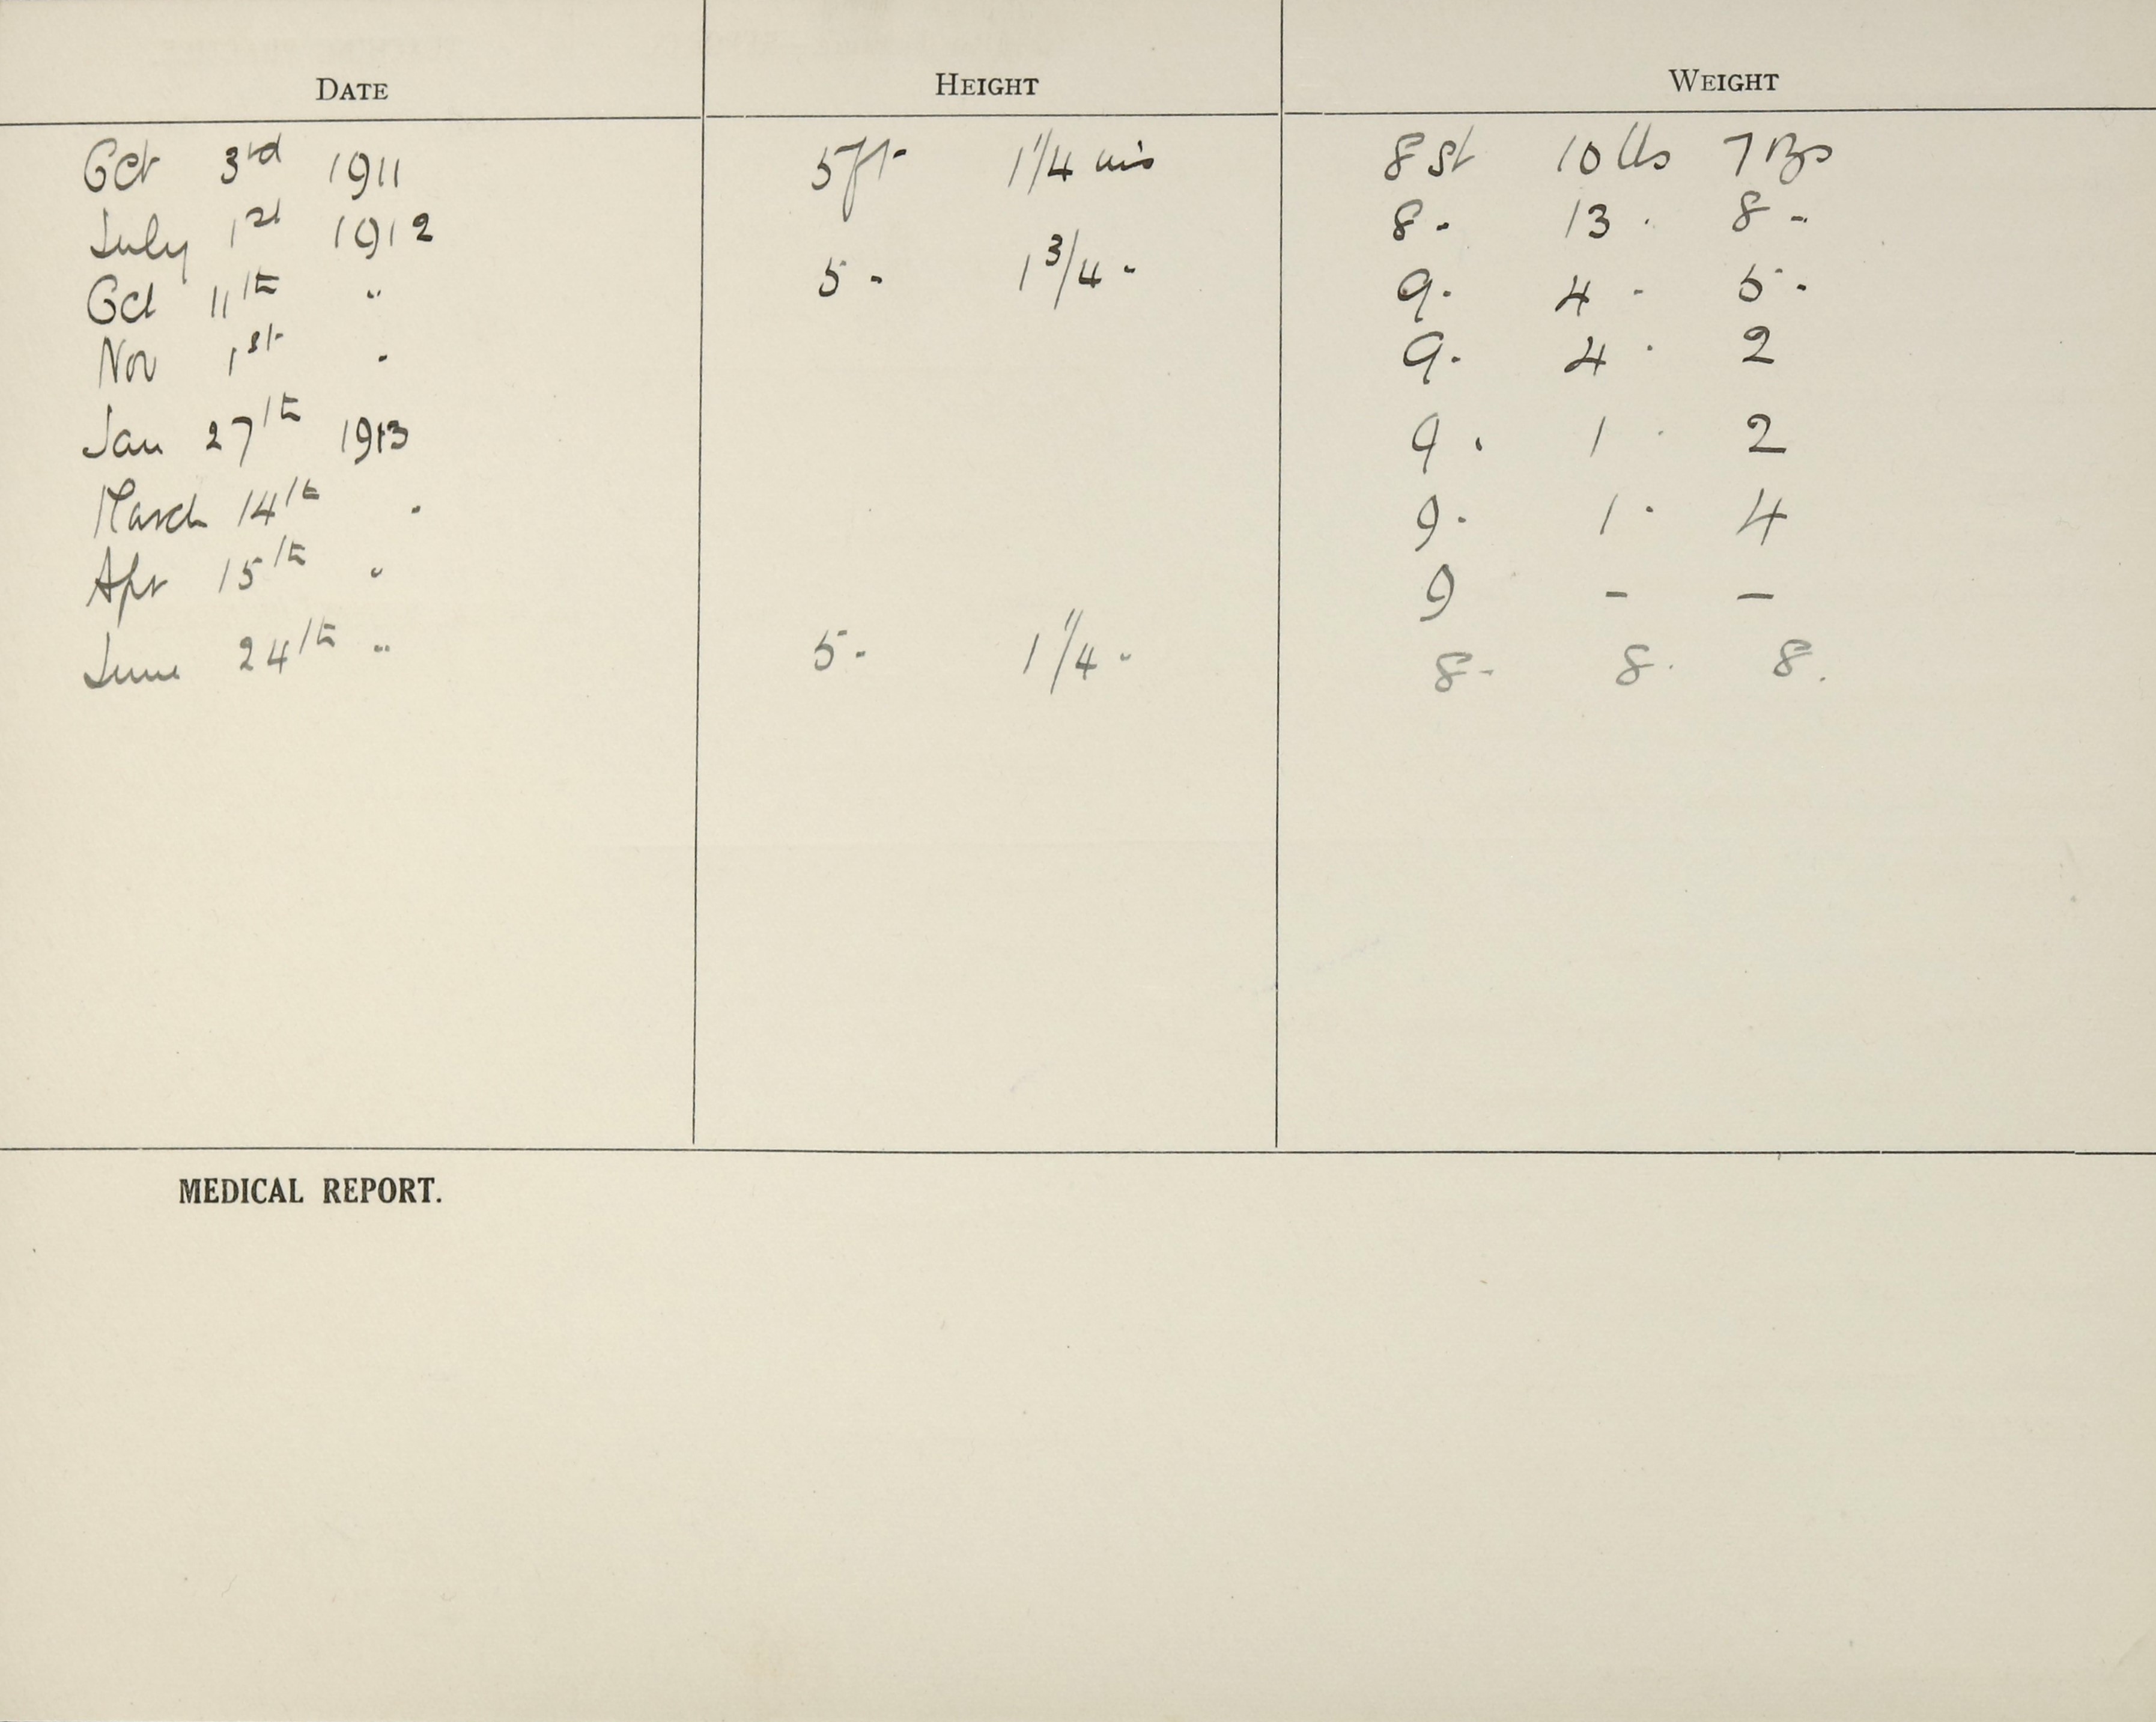 DATE HEIGHT WEIGHT
Oct 3rd 1911 5ft 1 1/4 ins 8 st 10 lbs 7 ozs
July 1st 1912 8 - 13 - 8 -
Oct 11th " 5 - 1 3/4 - 9 - 4 - 5 -
Nov 1st " 9 - 4 - 2
Jan 27th 1913 9 - 1 - 2
March 14th " 9 - 1 - 4
Apr 15th " 9 - -
June 24th " 5 - 1 1/4 - 8 - 8 - 8 -
MEDICAL REPORT.